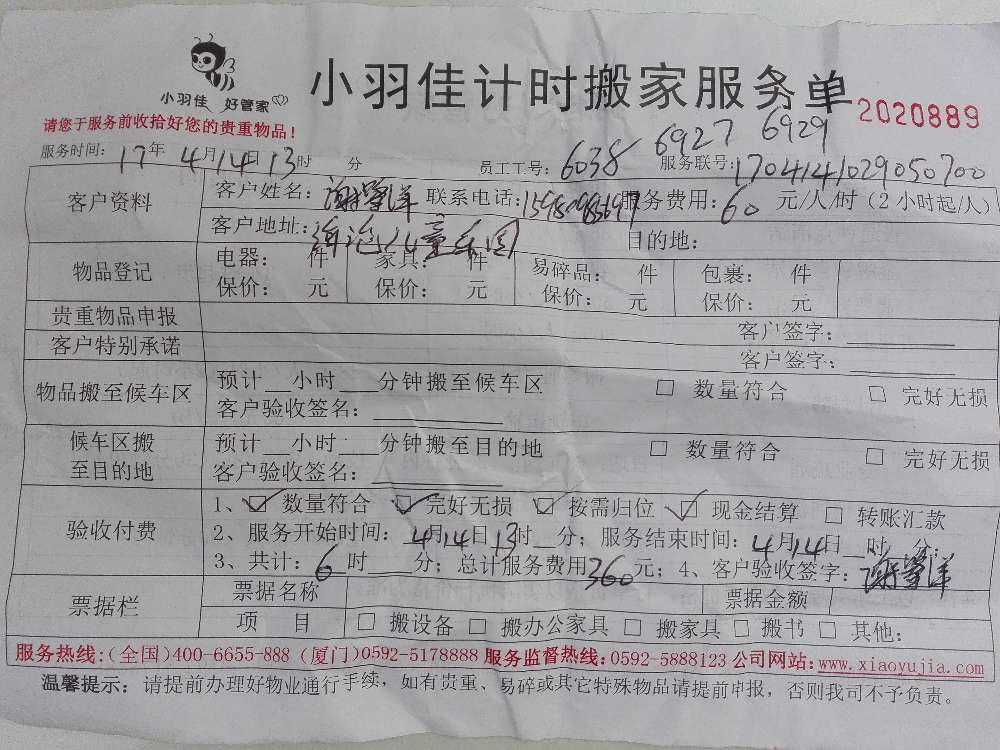 小羽佳 好管家
小羽佳计时搬家服务单
2020889
请您于服务前收拾好您的贵重物品!
6927 6929
服务时间: 17年 4月14日13时 分 员工工号: 6038 服务联号: 1704141029050700
客户资料 客户姓名: 谢 洋 联系电话: 服务费用: 60 元/人/时 (2小时起/人)
客户地址: 儿童乐园 目的地:
物品登记 电器: 件 家具: 件 易碎品: 件 包裹: 件
保价: 元 保价: 元 保价: 元 保价: 元
贵重物品申报 客户签字:
客户特别承诺 客户签字:
物品搬至候车区 预计 小时 分钟搬至候车区 □ 数量符合 □ 完好无损
客户验收签名:
候车区搬至目的地 预计 小时 分钟搬至目的地 □ 数量符合 □ 完好无损
客户验收签名:
验收付费 1、☑ 数量符合 ☑ 完好无损 ☑ 按需归位 ☑ 现金结算 □ 转账汇款
2、服务开始时间: 4月14日13时 分; 服务结束时间: 4月14日 时 分;
3、共计: 6时 分; 总计服务费用360元; 4、客户验收签字: 谢 洋
票据栏 票据名称 票据金额
项 目 □ 搬设备 □ 搬办公家具 □ 搬家具 □ 搬书 □ 其他:
服务热线:(全国)400-6655-888 (厦门)0592-5178888 服务监督热线:0592-5888123 公司网站:www.xiaoyujia.com
温馨提示: 请提前办理好物业通行手续, 如有贵重、易碎或其它特殊物品请提前申报, 否则我司不予负责。